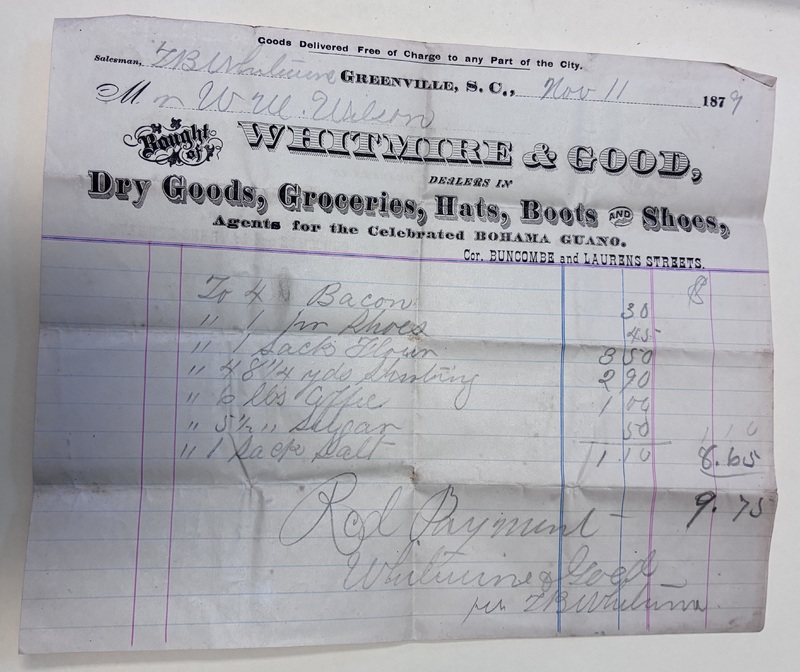 Goods Delivered Free of Charge to any Part of the City.
Salesman, T B Whitmire GREENVILLE, S. C., Nov 11 1879
Mr W M Wilson
Bought of WHITMIRE & GOOD,
DEALERS IN
Dry Goods, Groceries, Hats, Boots AND Shoes,
Agents for the Celebrated BOHAMA GUANO.
Cor. BUNCOMBE and LAURENS STREETS.
$
To 4 Bacon 30
" 1 pr Shoes 45
" 1 Sack Flour 3 50
" 48 1/4 yds Shirting 2 90
" 6 lbs Coffee 1 00
" 5 1/2 " Sugar 50 1 10
" 1 Sack Salt 1 10 8.65
9.75
Recd Payment
Whitmire & Good
per T B Whitmire